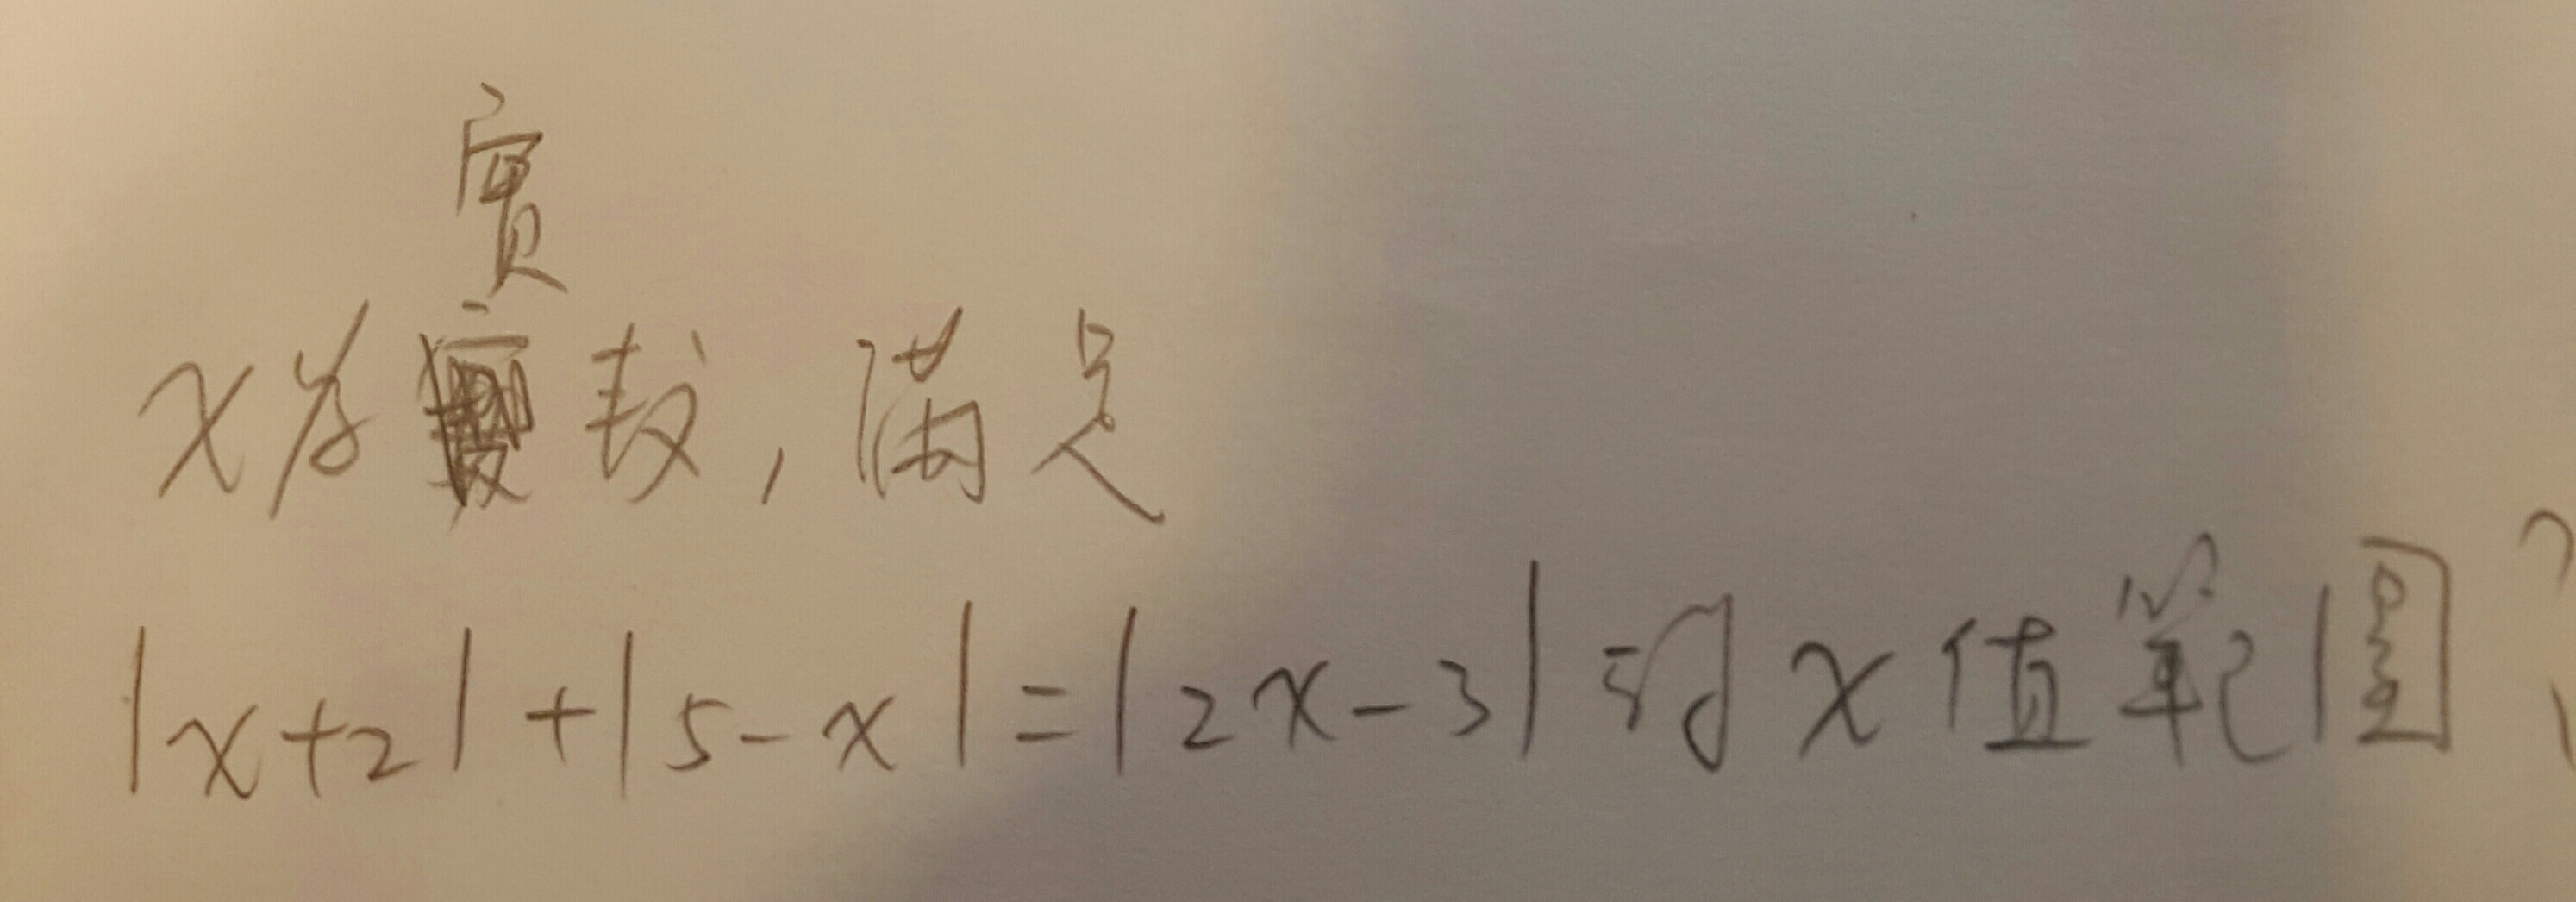 x为實数,满足
|x+2|+|5-x|=|2x-3|的x值範围?